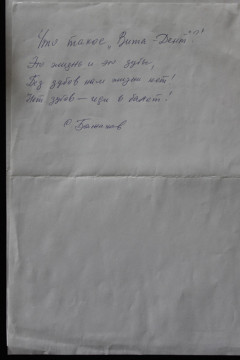 Что такое „Вита-Дент"?
Это жизнь и это зубы,
Без зубов нам жизни нет!
Нет зубов — иди в